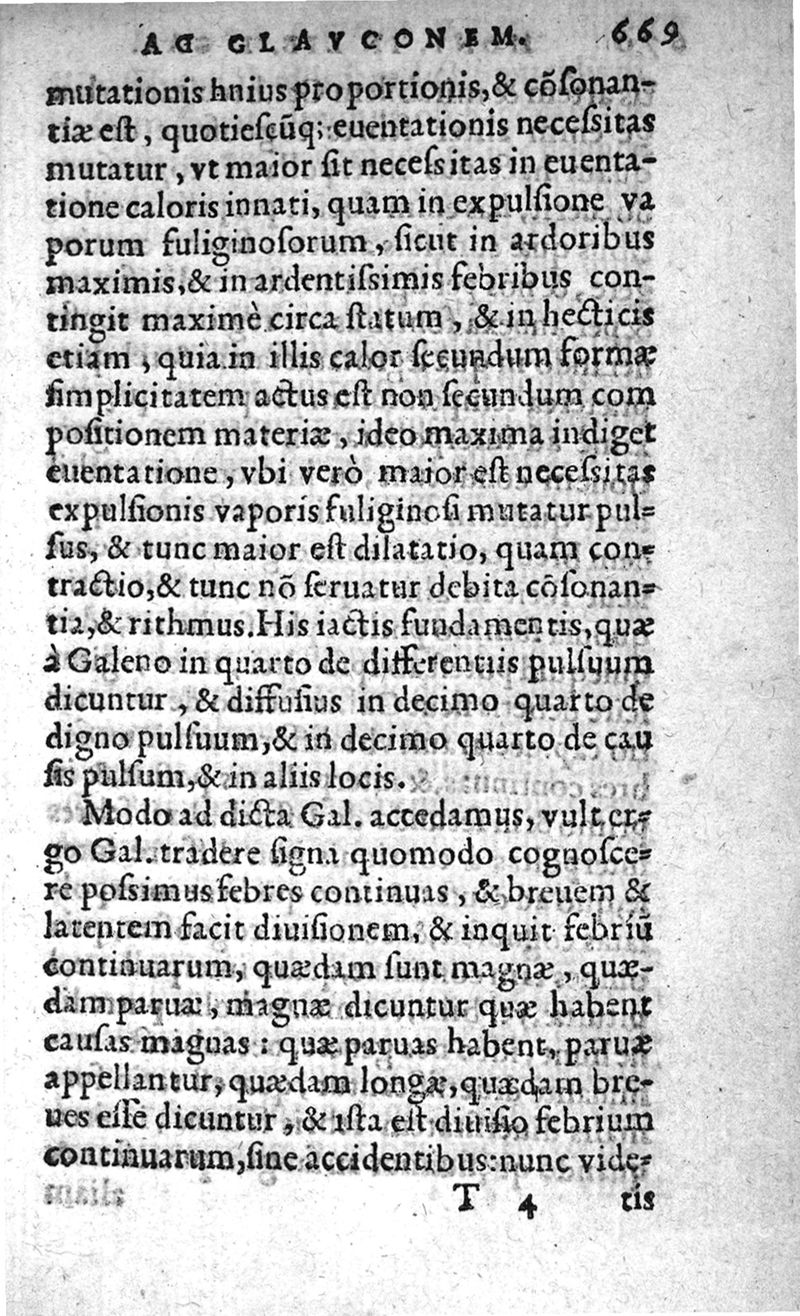 AD GLAVCONEM. 669
mutationis hnius proportionis,& cõſonan-
tiæ eſt, quotieſcũq; euentationis neceſsitas
mutatur, vt maior ſit neceſsitas in euenta-
tione caloris innati, quam in expulſione va
porum fuliginoſorum, ſicut in ardoribus
maximis,& in ardentiſsimis febribus con-
tingit maximè circa ſtatum, & in hecticis
etiam, quia in illis calor ſecundum formæ
ſimplicitatem actus eſt non ſecundum com
poſitionem materiæ, ideo maxima indiget
euentatione, vbi verò maior eſt neceſsitas
expulſionis vaporis fuliginoſi mutatur pul-
ſus, & tunc maior eſt dilatatio, quam con-
tractio,& tunc nõ ſeruatur debita cõſonan-
tia,& rithmus. His iactis fundamentis, quæ
à Galeno in quarto de differentiis pulſuum
dicuntur, & diffuſius in decimo quarto de
digno pulſuum,& in decimo quarto de cau
ſis pulſum,& in aliis locis.
Modo ad dicta Gal. accedamus, vult er-
go Gal. tradere ſigna quomodo cognoſce-
re poſsimus febres continuas, & breuem &
latentem facit diuiſionem, & inquit febriũ
continuarum, quædam ſunt magnæ, quæ-
dam paruæ, magnæ dicuntur quæ habent
cauſas magnas : quæ paruas habent, paruæ
appellantur, quædam longæ, quædam bre-
ues eſſe dicuntur, & iſta eſt diuiſio febrium
continuarum, ſine accidentibus: nunc vide-
T 4 tis